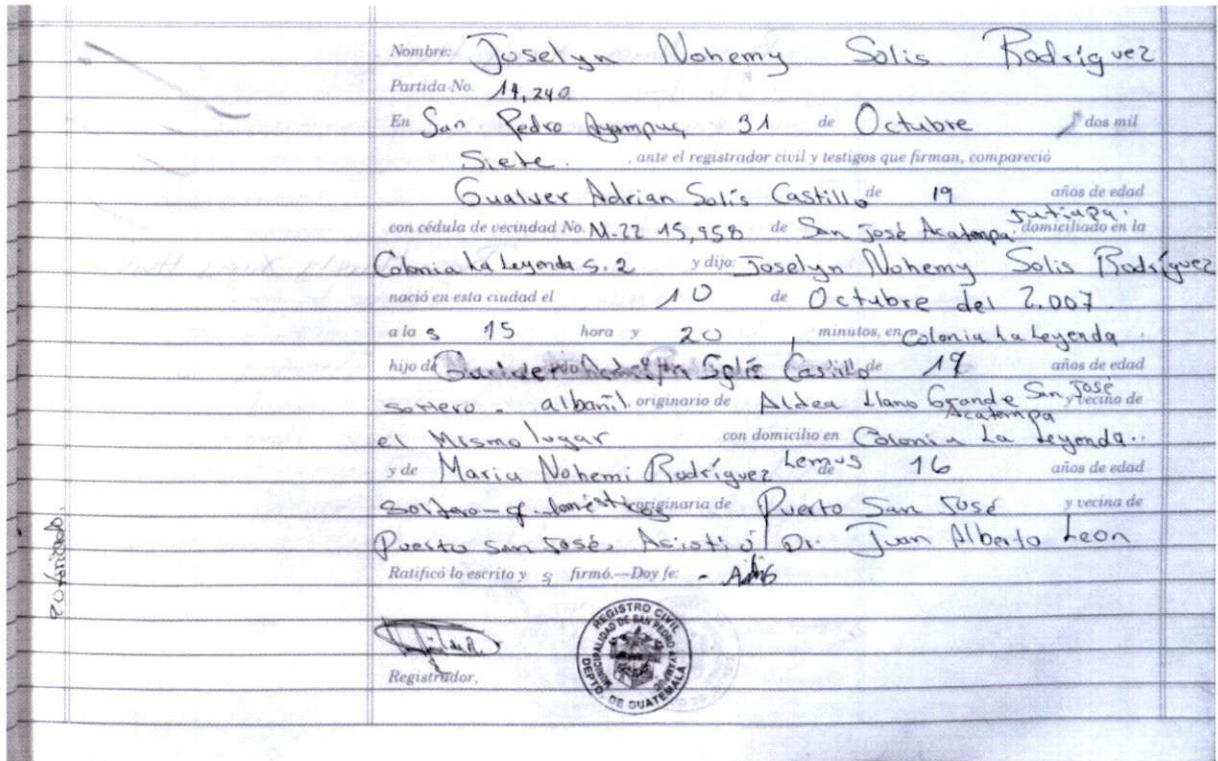 Nombre: Joselyn Nohemy Solis Rodríguez
Partida No. 14,240
En San Pedro Ayampuc, 31 de Octubre dos mil
Siete. , ante el registrador civil y testigos que firman, compareció
Gualver Adrian Solís Castillo de 19 años de edad
con cédula de vecindad No. M-22 15,958 de San José Acatempa. Jutiapa. domiciliado en la
Colonia La Leyenda S. 2 y dijo: Joselyn Nohemy Solis Rodríguez
nació en esta ciudad el 10 de Octubre del 2.007
a la s 15 hora y 20 minutos, en Colonia La Leyenda
hijo de Solís Castillo de 19 años de edad
soltero - albañil. originario de Aldea Llano Grande San José Acatempa y vecino de
el Mismo lugar con domicilio en Colonia La Leyenda.
y de Maria Nohemi Rodríguez Lemus de 16 años de edad
originaria de Puerto San José y vecina de
Puerto San José. Asistió Dr. Juan Alberto Leon
Ratificó lo escrito y si firmó.—Doy fe:
Registrador,
REGISTRO CIVIL
MUNICIPALIDAD DE SAN PEDRO AYAMPUC
DEPTO. DE GUATEMALA